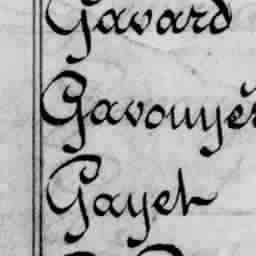 Gavard
Gavouyèr
Gayet